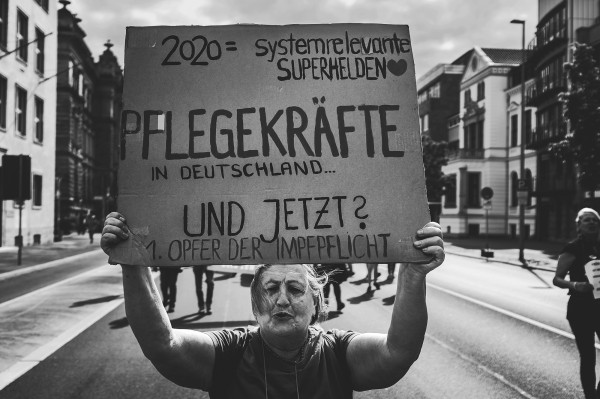 2020 = systemrelevante
SUPERHELDEN ♥
PFLEGEKRÄFTE
IN DEUTSCHLAND...
UND JETZT?
1. OPFER DER IMPFPFLICHT